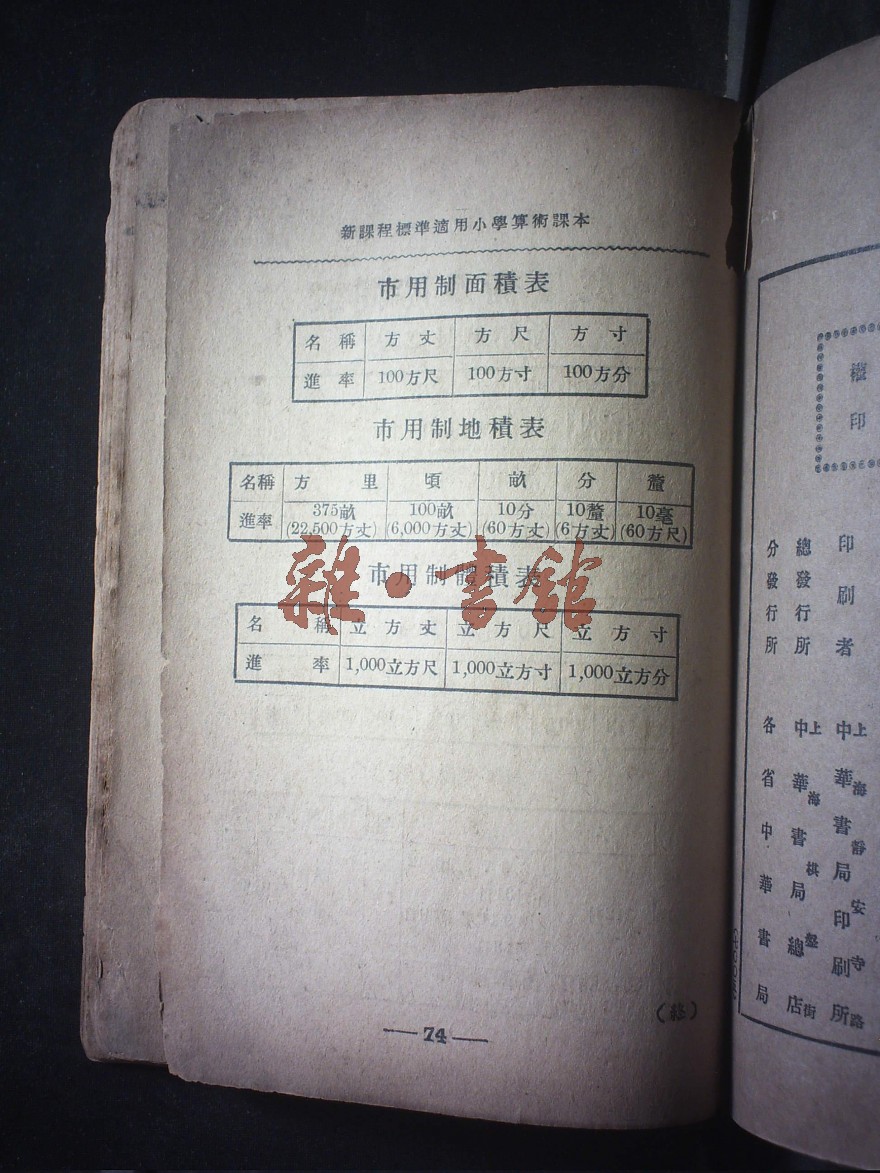 新課程標準適用小學算術課本
市用制面積表
名稱 方丈 方尺 方寸
進率 100方尺 100方寸 100方分
市用制地積表
名稱 方里 頃 畝 分 釐
進率 375畝 100畝 10分 10釐 10毫
(22,500方丈) (6,000方丈) (60方丈) (6方丈) (60方尺)
市用制體積表
雜·書館
名稱 立方丈 立方尺 立方寸
進率 1,000立方尺 1,000立方寸 1,000立方分
(終)
—74—
權印
印刷者 上海靜安寺路 中華書局印刷所
總發行所 上海棋盤街 中華書局總店
分發行所 各省中華書局